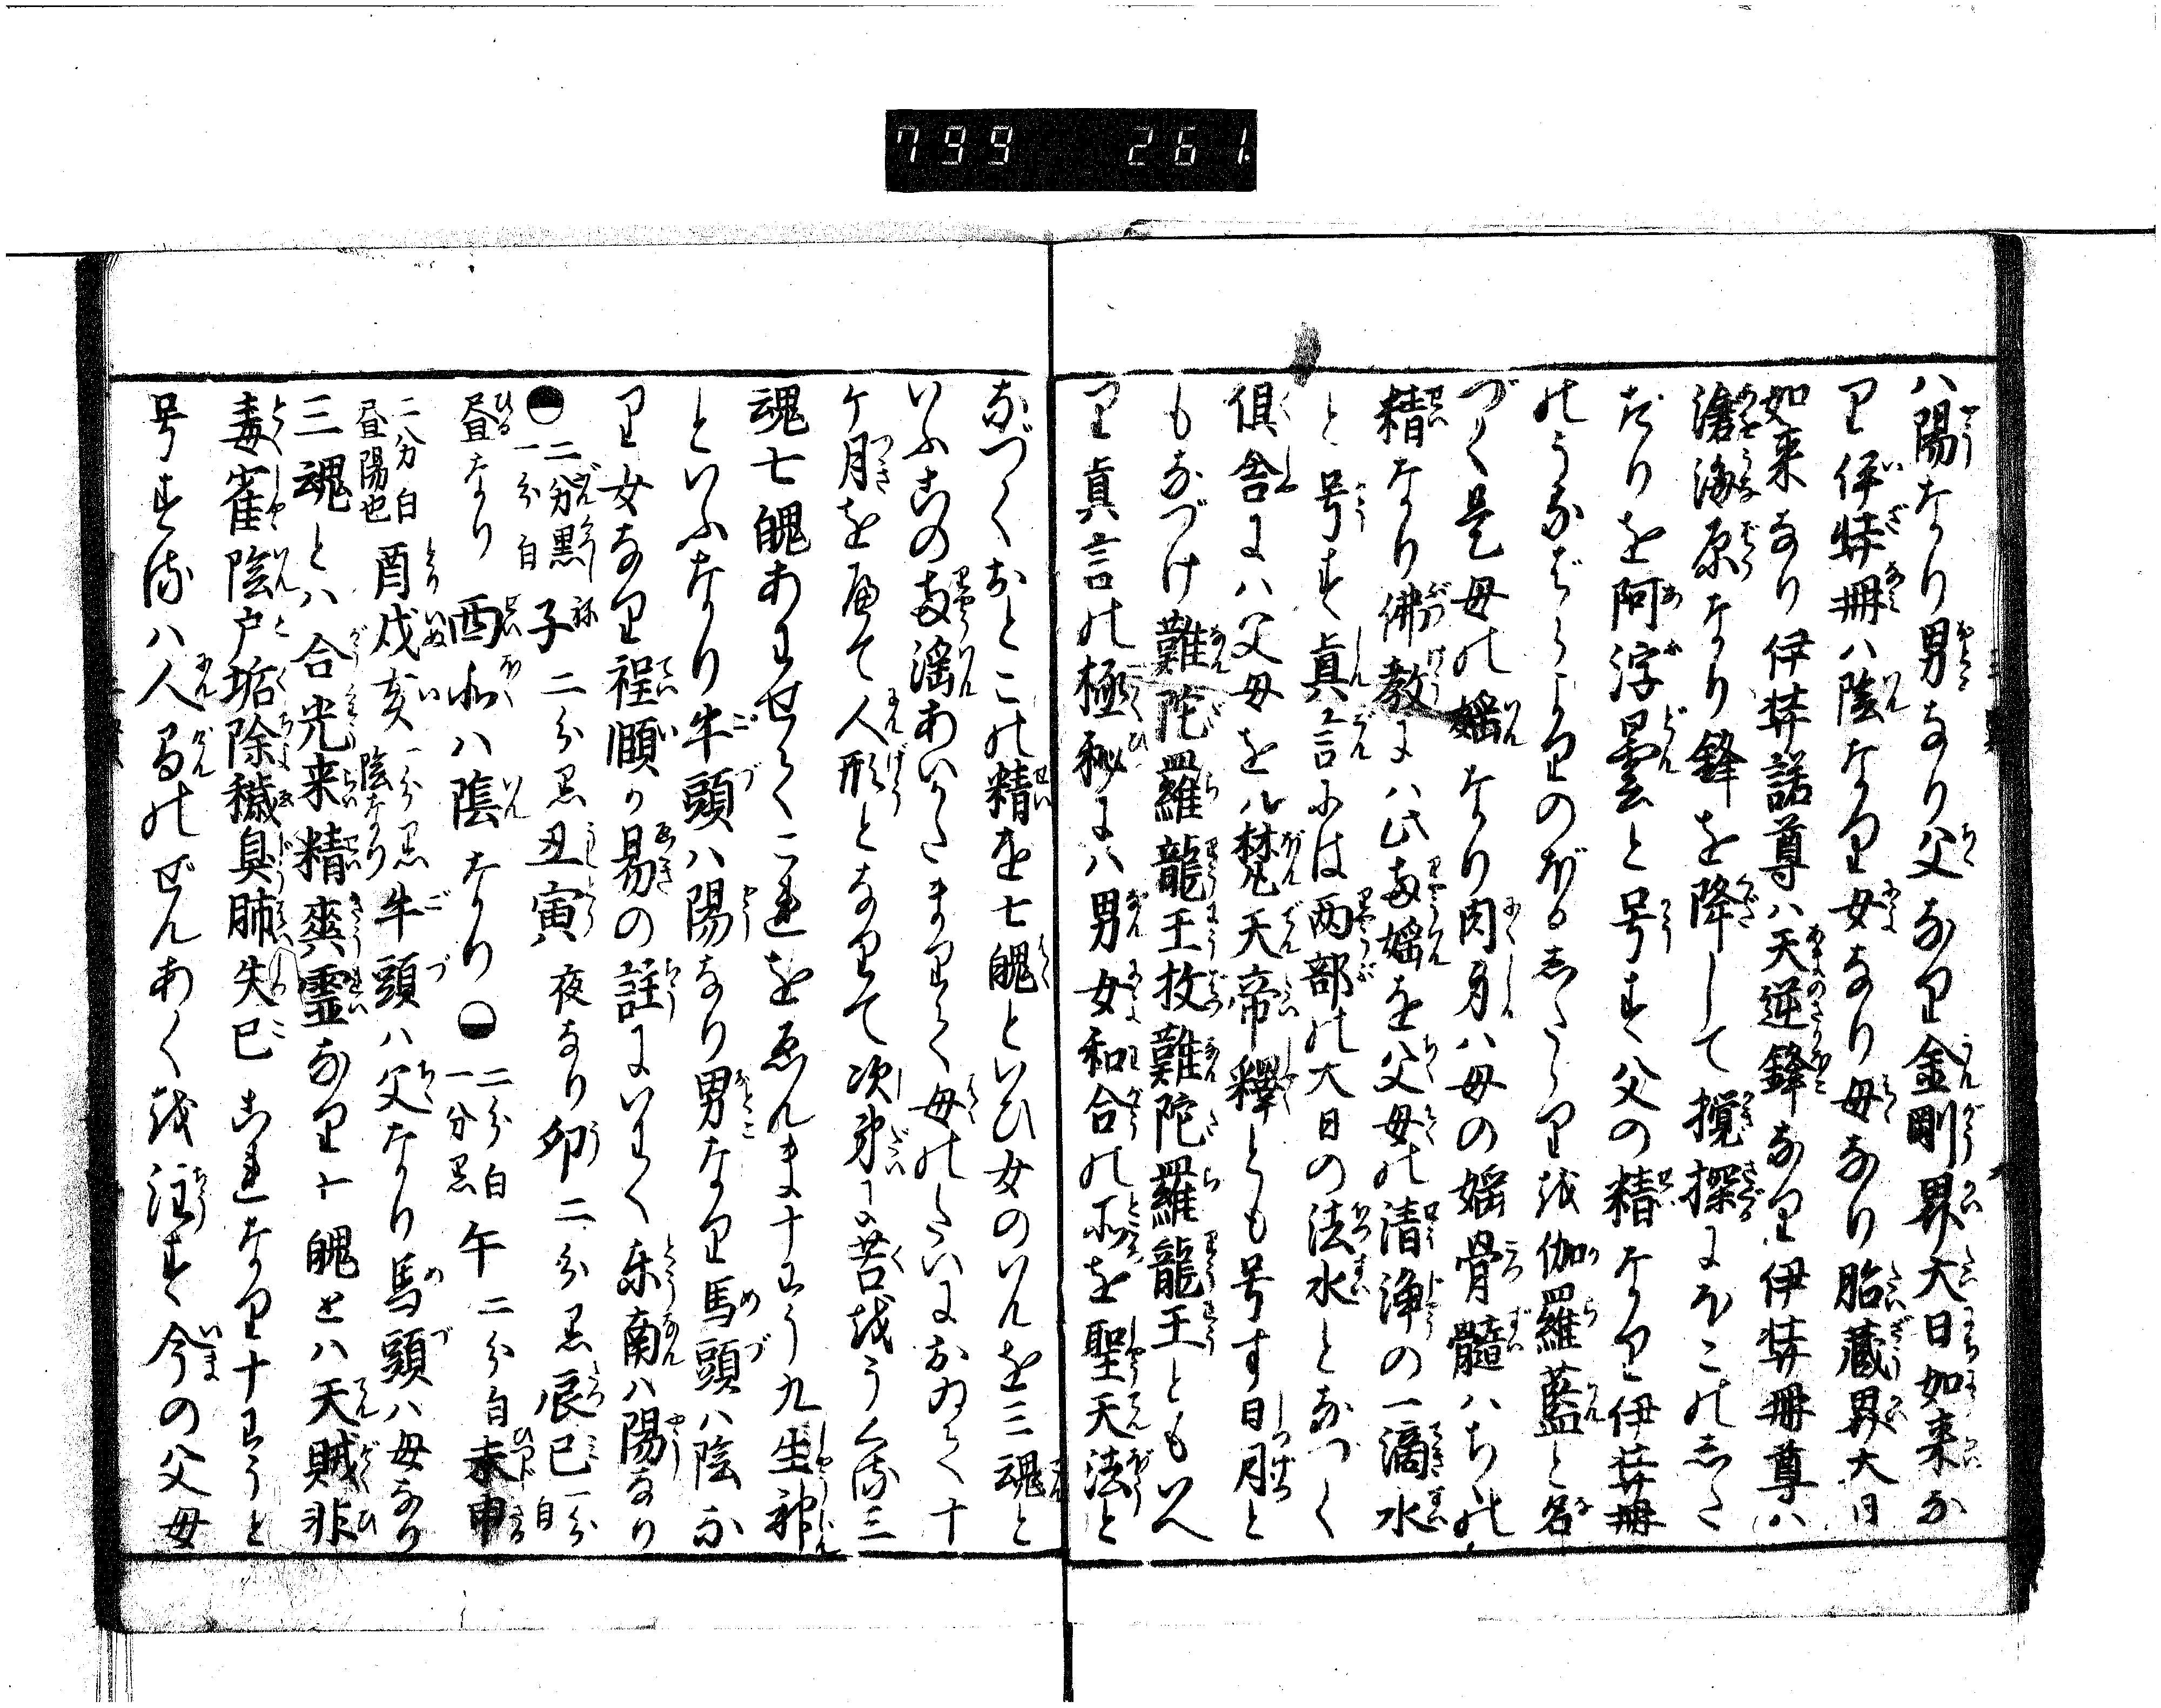 799 261.
八陽なり男なり父なり金剛界大日如来な
り伊弉冊ハ陰なり女なり母なり胎蔵界大日
如来なり伊弉諾尊ハ天逆鋒なり伊弉冊尊ハ
滄海原なり鋒を降して攪探にほこのした
だりを阿浮曇と号す父の精なり伊弉冊
のうなばらよりのぼるしたゝり越伽羅藍と名
づく是母の婬なり肉身ハ母の婬骨髓ハちゝの
精なり佛教にハ此両婬を父母の清浄の一滴水
と号す真言には两部の大日の法水となづく
倶舎にハ父母を梵天帝釋とも号す日月と
もなづけ難陀羅龍王抜難陀羅龍王ともいへ
り真言の極秘にハ男女和合の所を聖天法と
なづくおとこの精を七魄といひ女のいんを三魂と
いふ右の両滛あいかたまりて母のたいにおゐて十
ケ月を歴て人形となりて次第に苦越うくる三
魂七魄あわせてこれを ゑんま十わう九生神
といふなり牛頭ハ陽なり男なり馬頭ハ陰な
り女なり程頤か易の註にいわく東南ハ陽なり
二分黒一分白 子 二分黒丑寅夜なり卯二分黒辰巳一分白
昼なり 西北ハ陰なり 二分白一分黒 午 二分白未申
二分白昼陽也 酉戌亥一分黒陰なり 牛頭ハ父なり馬頭ハ母なり
三魂とハ合光来精奭霊なり七魄とハ天賊非
毒雀陰戸垢除穢臭肺失巳 これなり十わうと
号する ハ人間のぜんあく越注す今の父母